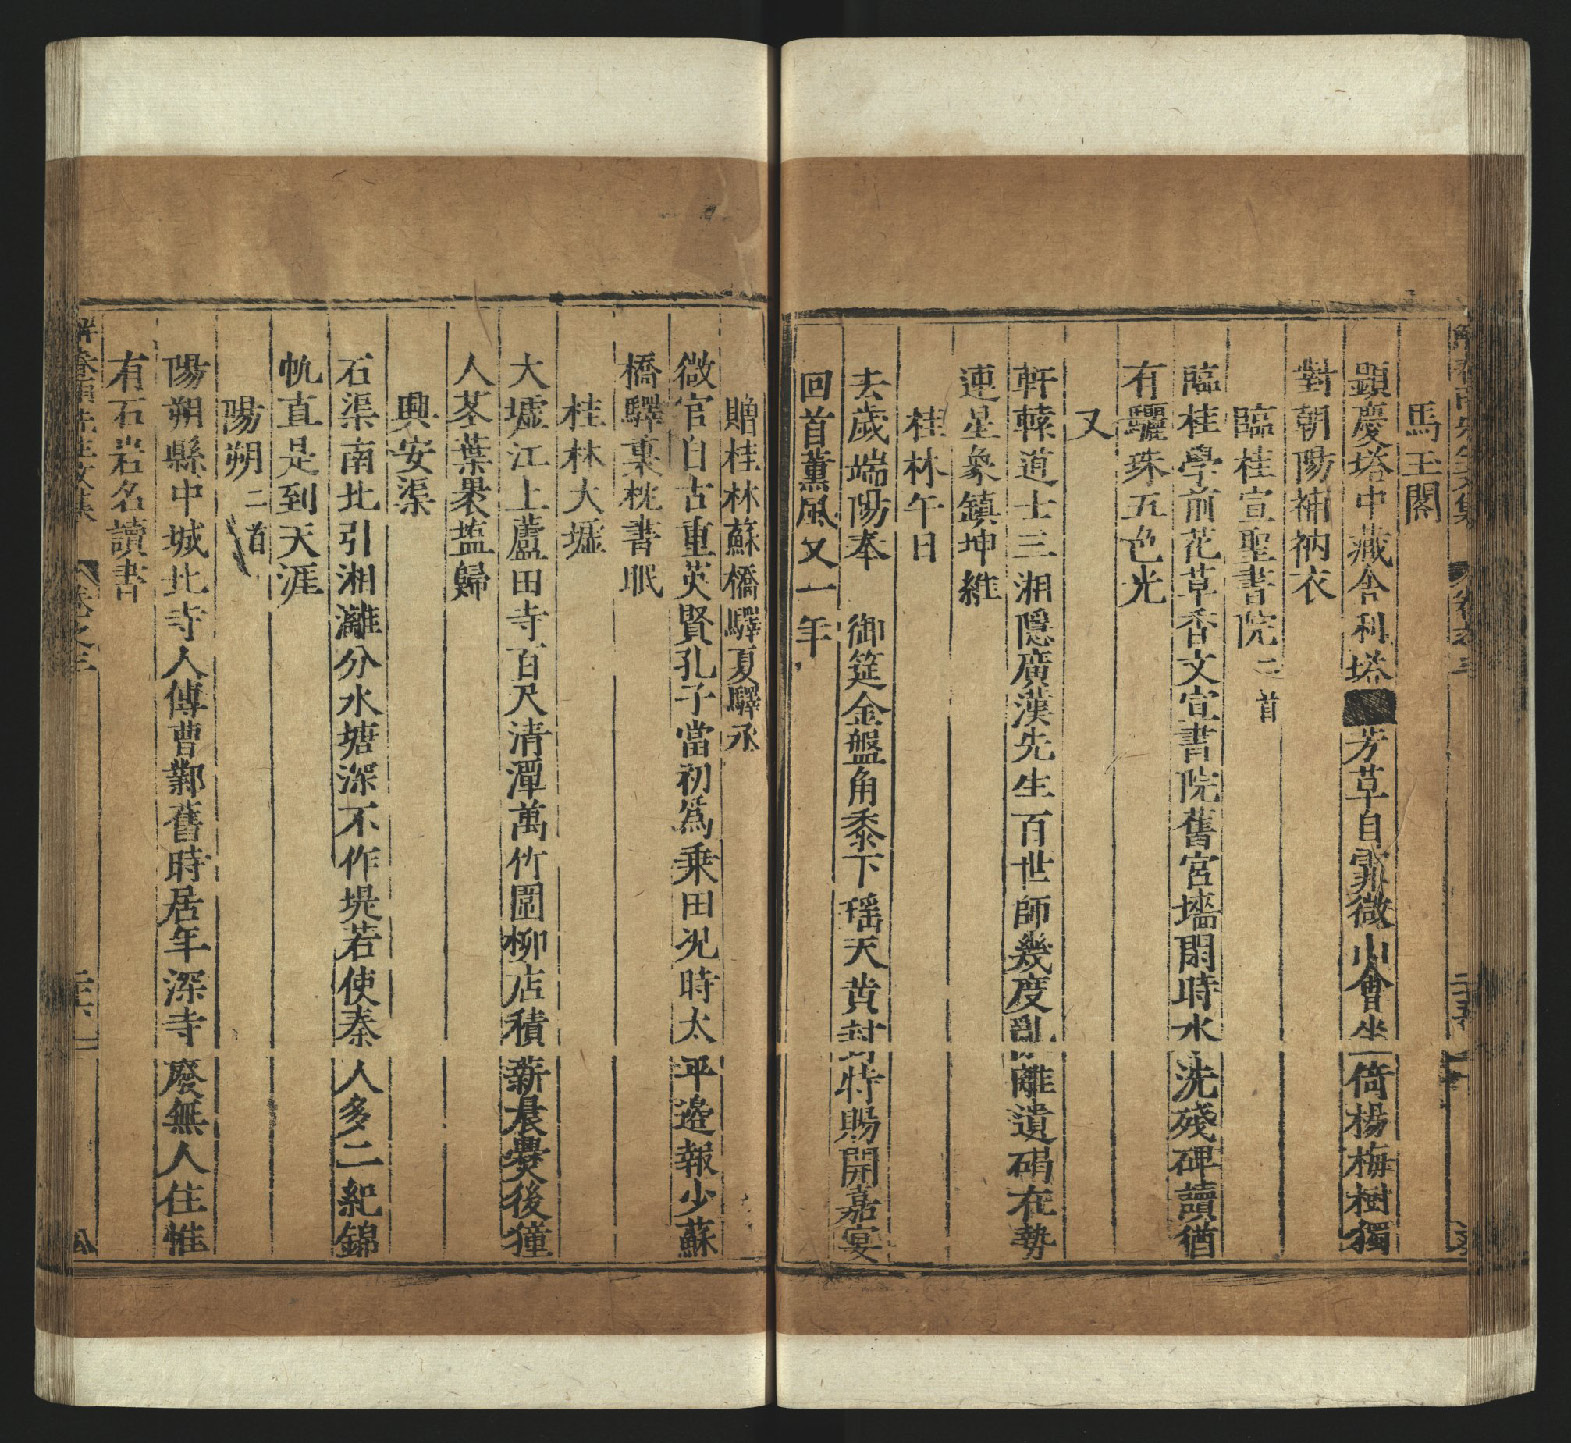 馬王閣
顯慶塔中藏舍利塔芳草自霏微山會坐倚楊梅樹獨
對朝陽補衲衣
臨桂宣聖書院二首
臨桂學前花草香文宣書院舊宮墻閑時水洗殘碑讀猶
有驪珠五色光
又
軒轅道士三湘隱廣漢先生百世師幾度亂離遺碣在勢
連星象鎮坤維
桂林午日
去歲端陽奉 御筵金盤角黍下瑤天黄封特賜開嘉宴
回首薰風又一年
贈桂林蘇橋驛夏驛丞
微官自古重英賢孔子當初爲乗田況時太平邊報少蘇
橋驛裏枕書眠
桂林大墟
大墟江上蘆田寺百尺清潭萬竹圍柳店積薪晨爨後獞
人荖葉褁塩歸
興安渠
石渠南北引湘灕分水塘深不作堤若使秦人多二紀錦
帆直是到天涯
陽朔二首
陽朔縣中城北寺人傳曹鄴舊時居年深寺廢無人住惟
有石岩名讀書